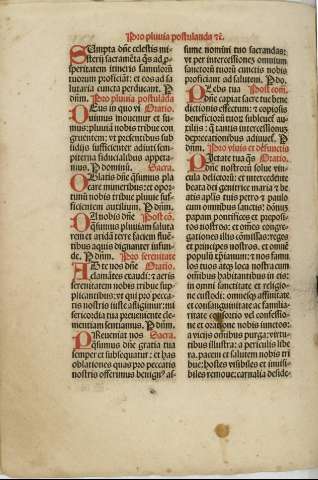 Pro pluuia postulanda ⁊c̄.
Sumpta dn̄e celestis mi-
sterij sacramēta q̄s ad ꝓ-
speritatem itineris famulorū
tuorum proficiāt: et eos ad sa-
lutaria cuncta perducant. P
dn̄m. Pro pluuia postulāda
Deus in quo vi Oratio.
uimus mouemur et su-
mus: pluuiā nobis tribue con
gruentem: vt presentibus sub-
sidijs sufficienter adiuti sem-
piterna fiducialius appeta-
mus. P dominū. Secra.
Oblatis dn̄e q̄sumus pla
care muneribus: et opor-
tunū nobis tribue pluuie suf-
ficientem auxilium. P dn̄m.
Da nobis dn̄e Postcōm.
q̄sumus pluuiam saluta
rem et aridā terre faciem flue-
tibus aquis dignanter infun-
de. P dn̄m. Pro serenitate
Ad te nos dn̄e Oratio.
clamātes exaudi: ⁊ aeris
serenitatem nobis tribue sup
plicantibus: vt qui pro pecca-
tis nostris iuste affligimur: mi
sericordia tua preueniente cle-
mentiam sentiamus. P dn̄m.
Preueniat nos Secra.
q̄sumus dn̄e gratia tua
semper et subsequatur: et has
oblationes quas pro peccatis
nostris offerimus benign⁹ as-
sume nomini tuo sacrandas:
vt per intercessionem omnium
sanctorū tuorū cunctis nobis
proficiant ad salutem. P do.
Plebs tua Post com.
dn̄e capiat sacre tue bene
dictionis effectum: ⁊ copiosis
beneficiorū tuoꝝ subleuet au-
xilijs: q̄ tantis intercessionū
deprecationibus adiuuet̄. P
dn̄m. Pro viuis et defunctis
Pietate tua q̄s Oratio.
dn̄e nostrorū solue vin-
cula delictorū: et intercedente
beata dei genitrice maria ⁊ be
atis apl̄is tuis petro ⁊ paulo
cum omnibus sanctis: domnū
papam pontifices et prepositos
nostros: et om̄es congre-
gationes illis cōmissas: reges
et principes nostros. et omnē
populū xp̄ianum: ⁊ nos famu
los tuos atq̄ loca nostra cum
omnibus habitantibus in eis:
in omni sanctitate et religio-
ne custodi: omnesq̄ affinitate
et consanguinitate ac familia-
ritate
et oratione nobis iunctos:
a vicijs omnibus purga: virtu-
tibus illustra: a periculis libe
ra. pacem et salutem nobis tri
bue: hostes visibiles et inuisi-
biles remoue: carnalia deside-